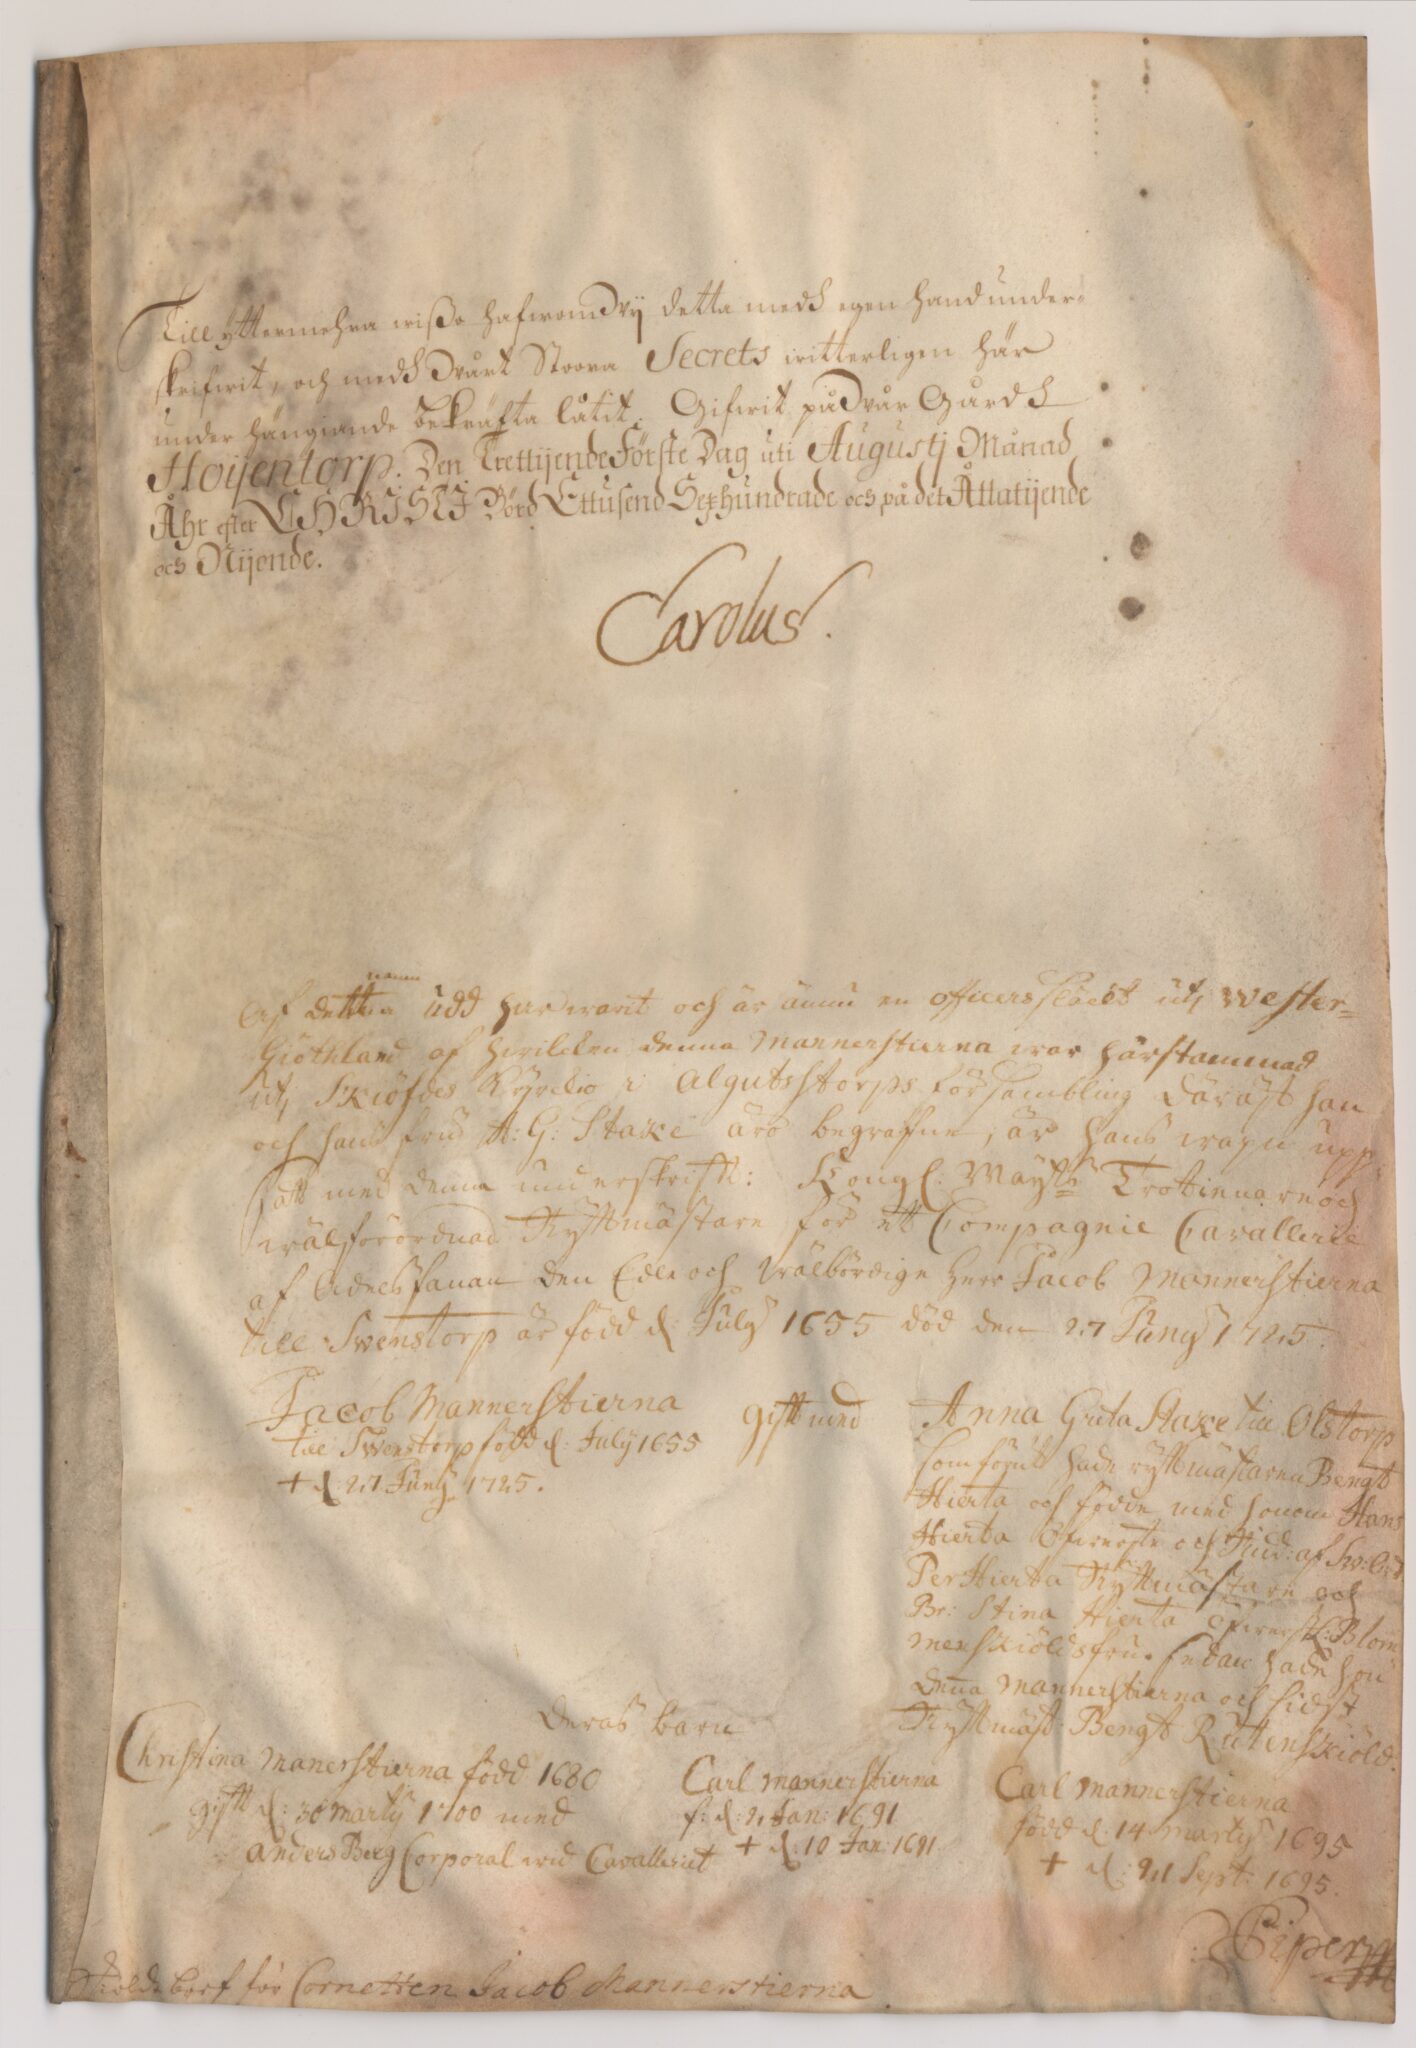 Till yttermehra wißo hafwom Wij detta medh egen hand under-
skrifwit, och medh Wårt Stoora Secrets witterligen här
under hängiande bekräfta låtit. Gifwit på Wår Gårdh
Höijentorp. Den Trettijende Förste Dag uti Augustj Månad
Åhr efter CHRISTJ Börd Ettusend Sexhundrade och på det Åttatijende
och Nijende.
Carolus.
namn
Af detta udd har warit och är ännu en officers slächt utj Wester-
Giöthland af hwilcken denna Mannerstierna war härstammad
utj Skiöfdes i Algutstorps försambling däräst han
och hans fru A: G: Stake äro begrafne, är hans wapn upp-
satt med denna underskrift: Kongl: Mayts Trotienare och
wälförordnad Ryttmästare för ett Compagnie Cavallerie
af Adelsfanan den Edle och Wälbördige Herr Jacob Mannerstierna
till Swenstorp är född d: July 1655 död den 27 Juny 1725.
Jacob Mannerstierna gift med Anna Greta Stake till Olstorp
till Swenstorp född d: July 1655
+ d: 27 Juny 1725.
som förut hade ryttmästaren Bengt
Hierta och födde med honom Hans
Hierta Öfwerste och af
Per Hierta Ryttmästare och
Br: Stina Hierta Öfwerstl: Blom
menskiölds fru. sedan hade hon
denna Mannerstierna och sidst
Ryttmäst: Bengt Rutenskiöld.
Deras barn
Christina Manerstierna född 1680
gift d: 30 Marty 1700 med
Anders Berg Corporal wid Cavalleriet
Carl Mannerstierna
f: d: 2 Jan: 1691
+ d: 10 Jan: 1691
Carl Mannerstierna
född d: 14 Marty 1695
+ d: 21 Sept: 1695.
C Piper
Skiölde bref för Cornetten Jacob Mannerstierna